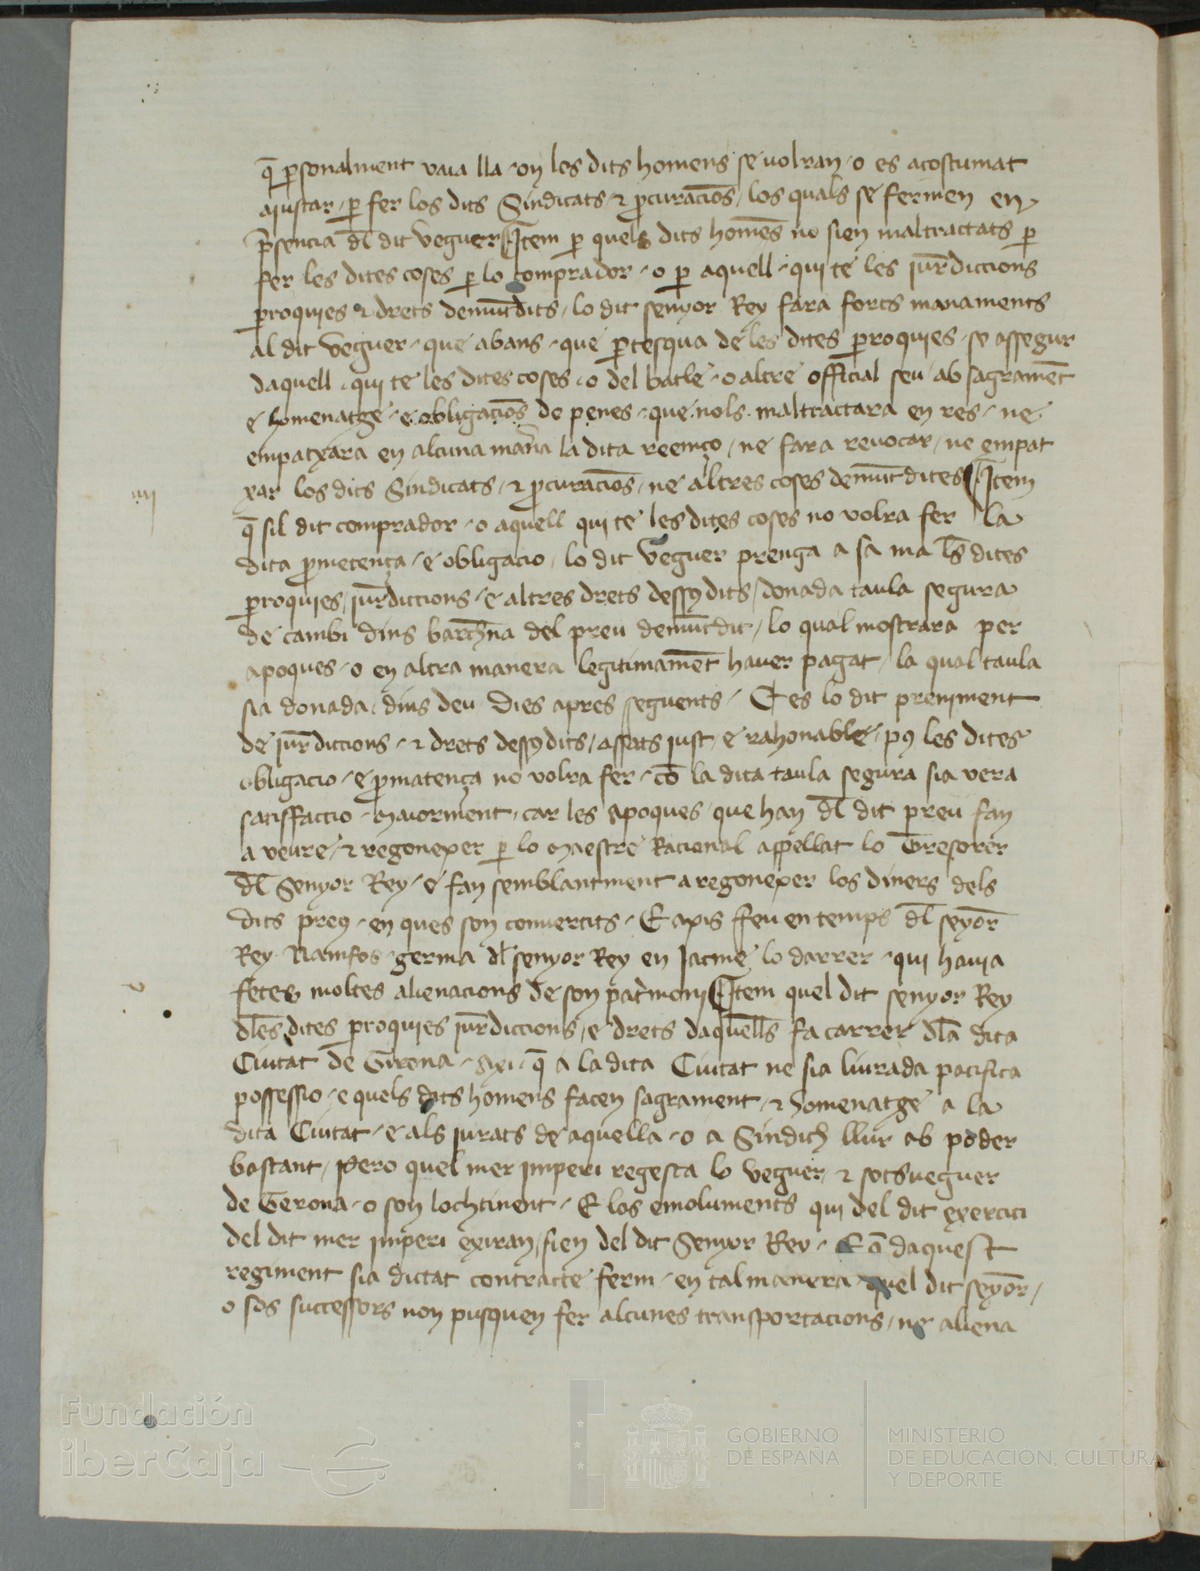 q̄ ꝑsonalment vaia lla on les dits homens se volran o es acostumat
aiustar ꝑ fer los dits Sindicats ⁊ ꝓcuracions los quals se fermen en
p̄sencia dl̄ dit veguer Item ꝑ quels dits homēs no sien maltractats ꝑ
fer les dites coses ꝑ lo comprador o ꝑ aquell qui te les iur̄diccions
ꝑroquies ⁊ drets demūtdits lo dit senyor Rey fara forts manaments
al dit veguer que abans que ꝑtesqua de les dites ꝑroquies se assegur
daquell qui te les dites coses o del batle o altre official seu ab sagramēt
e homenatge e obligacioš de penes que nols maltractara en res ne
empatxara en alcuna mana la dita reemço ne fara revocar ne empat
xar los dits Sindicats ⁊ ꝓcuracions ne altres coses demūtdites Item
iiii
q̄ sil dit comprador o aquell qui te les dites coses no volra fer la
dita ꝓmetença e obligacio lo dit veguer prenga a sa ma ls̄ dites
ꝑroquies iur̄diccions e altres drets dessꝯdits donada taula segura
de cambi dins barch̄na del preu demūtdit lo qual mostrara per
apoques o en altra manera legitimamēt haver pagat la qual taula
sia donada dins deu dies apres seguents E es lo dit preniment
de iur̄diccions ⁊ drets dessꝯdits assats iust e rahonable pꝯ les dites
obligacio e ꝓmatença no volra fer cō la dita taula segura sia vera
satisffaccio maiorment car les apoques que han dl̄ dit preu fan
a veure ⁊ regonexer ꝑ lo maestre Racional appellat lo Tresorer
dl̄ Senyor Rey e fan semblantment a regonexer los diners dels
dits preꝯ en ques son convertits E axis feu en temps dl̄ seyor̄
Rey Namfos germa dl̄ senyor Rey en Jacme lo darrer qui havia
fetes moltes alienacions de son pat̄moni Item quel dit senyor Rey
dles dites ꝑroquies iur̄diccions e drets daquells fa carrer dla dita
Ciutat de Gerona Axi q̄ a la dita Ciutat ne sia liurada pacifica
possessio e quels dits homens facen sagrament ⁊ homenatge a la
dita Ciutat e als jurats de aquella o a Sindich llur ab poder
bastant Pero quel mer imperi regesca lo veguer ⁊ sotsveguer
de Gerona o son lochtinent E los emoluments qui del dit exercici
del dit mer imperi exiran sien del dit Senyor Rey E q̄ daquest
regiment sia dictat contracte ferm en tal manera quel dit seyor̄
o sos successors non pusquen fer alcunes transportacions ne aliena
Fundación
iberCaja
GOBIERNO
DE ESPAÑA
MINISTERIO
DE EDUCACION, CULTURA
Y DEPORTE